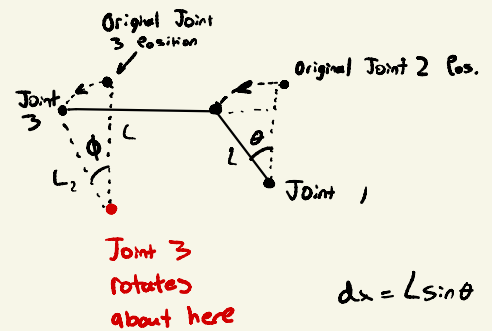 Original Joint
3 Position
Original Joint 2 Pos.
Joint
3
L
θ
ϕ
L
L₂
Joint 1
Joint 3
rotates
about here
dx = L sin θ